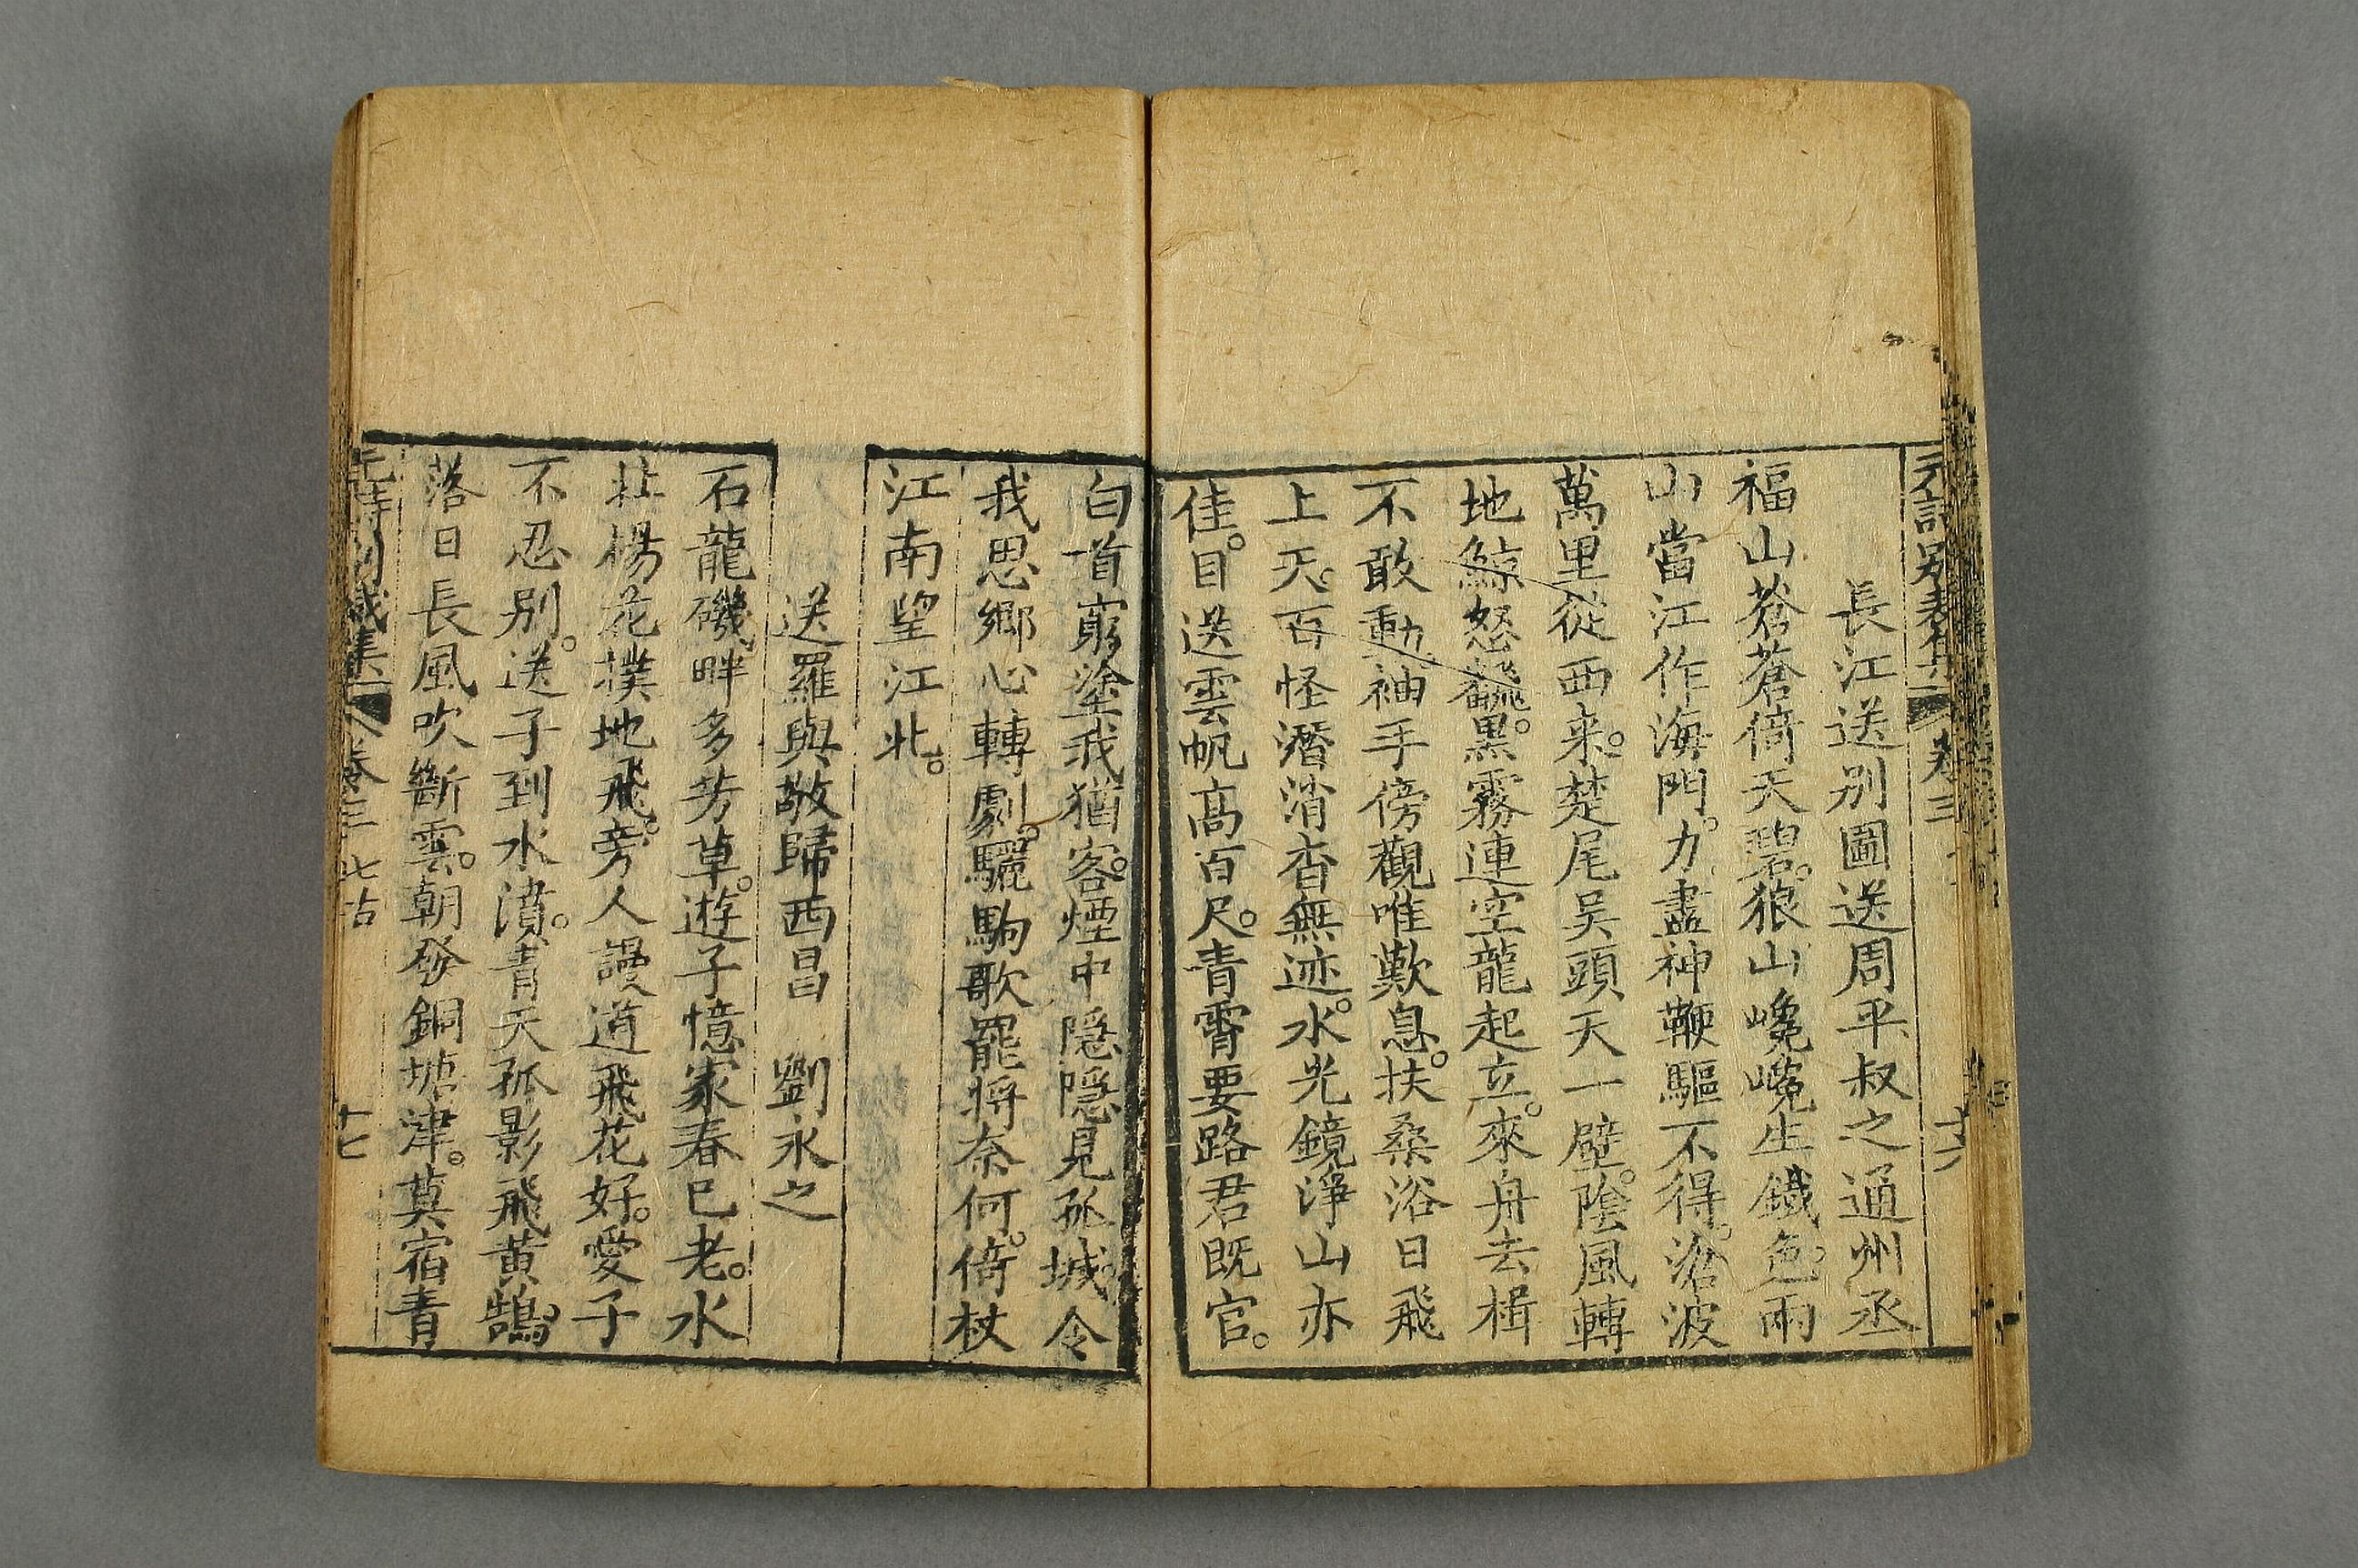 長江送别圖送周平叔之通州丞
福山蒼蒼倚天碧。狼山巉巉生鐵色。兩
山當江作海門。力盡神鞭驅不得。滄波
萬里從西来。楚尾吳頭天一壁。陰風轉
地鯨怒飜。黒霧連空龍起立。來舟去楫
不敢動。袖手傍觀唯歎息。扶桑浴日飛
上天。百怪潛消杳無迹。水光鏡淨山亦
佳。目送雲帆高百尺。青霄要路君既官。
白首窮塗我猶客。煙中隱隱見孤城。令
我思鄉心轉劇。驪駒歌罷将奈何。倚杖
江南望江北。
送羅與敬歸西昌 劉永之
石龍磯畔多芳草。遊子憶家春已老。水
北楊花撲地飛。旁人謾道飛花好。愛子
不忍别。送子到水濆。青天孤影飛黄鵠。
落日長風吹斷雲。朝發銅塘津。莫宿青
卷三
十七